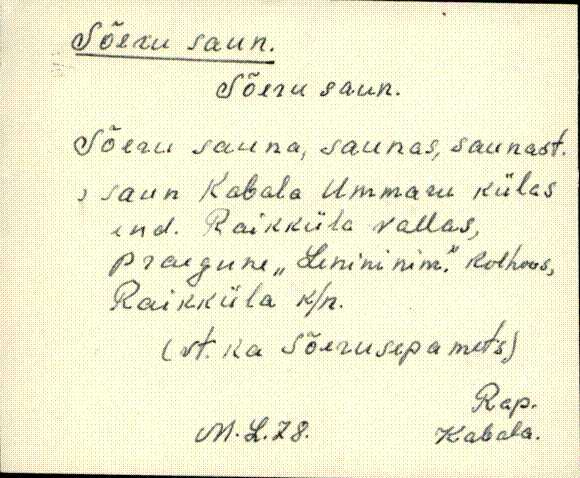 Sõeru saun.
Sõeru saun.
Sõeru sauna, saunas, saunast.
, saun Kabala Ummaru külas
end. Raikküla vallas,
praegune „Lenini nim." kolhoos,
Raikküla k/n.
(vt. ka Sõerusepa mets)
Rap.
M.L.78. Kabala.